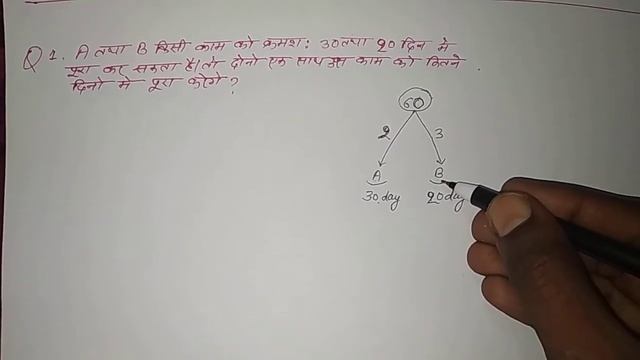 Q 1. A तथा B किसी काम को क्रमश: 30 तथा 20 दिन मे
पूरा कर सकता है। तो दोनो एक साथ उस काम को कितने
दिनो मे पूरा करेगे ?
60
2 3
A B
30 day 20 day